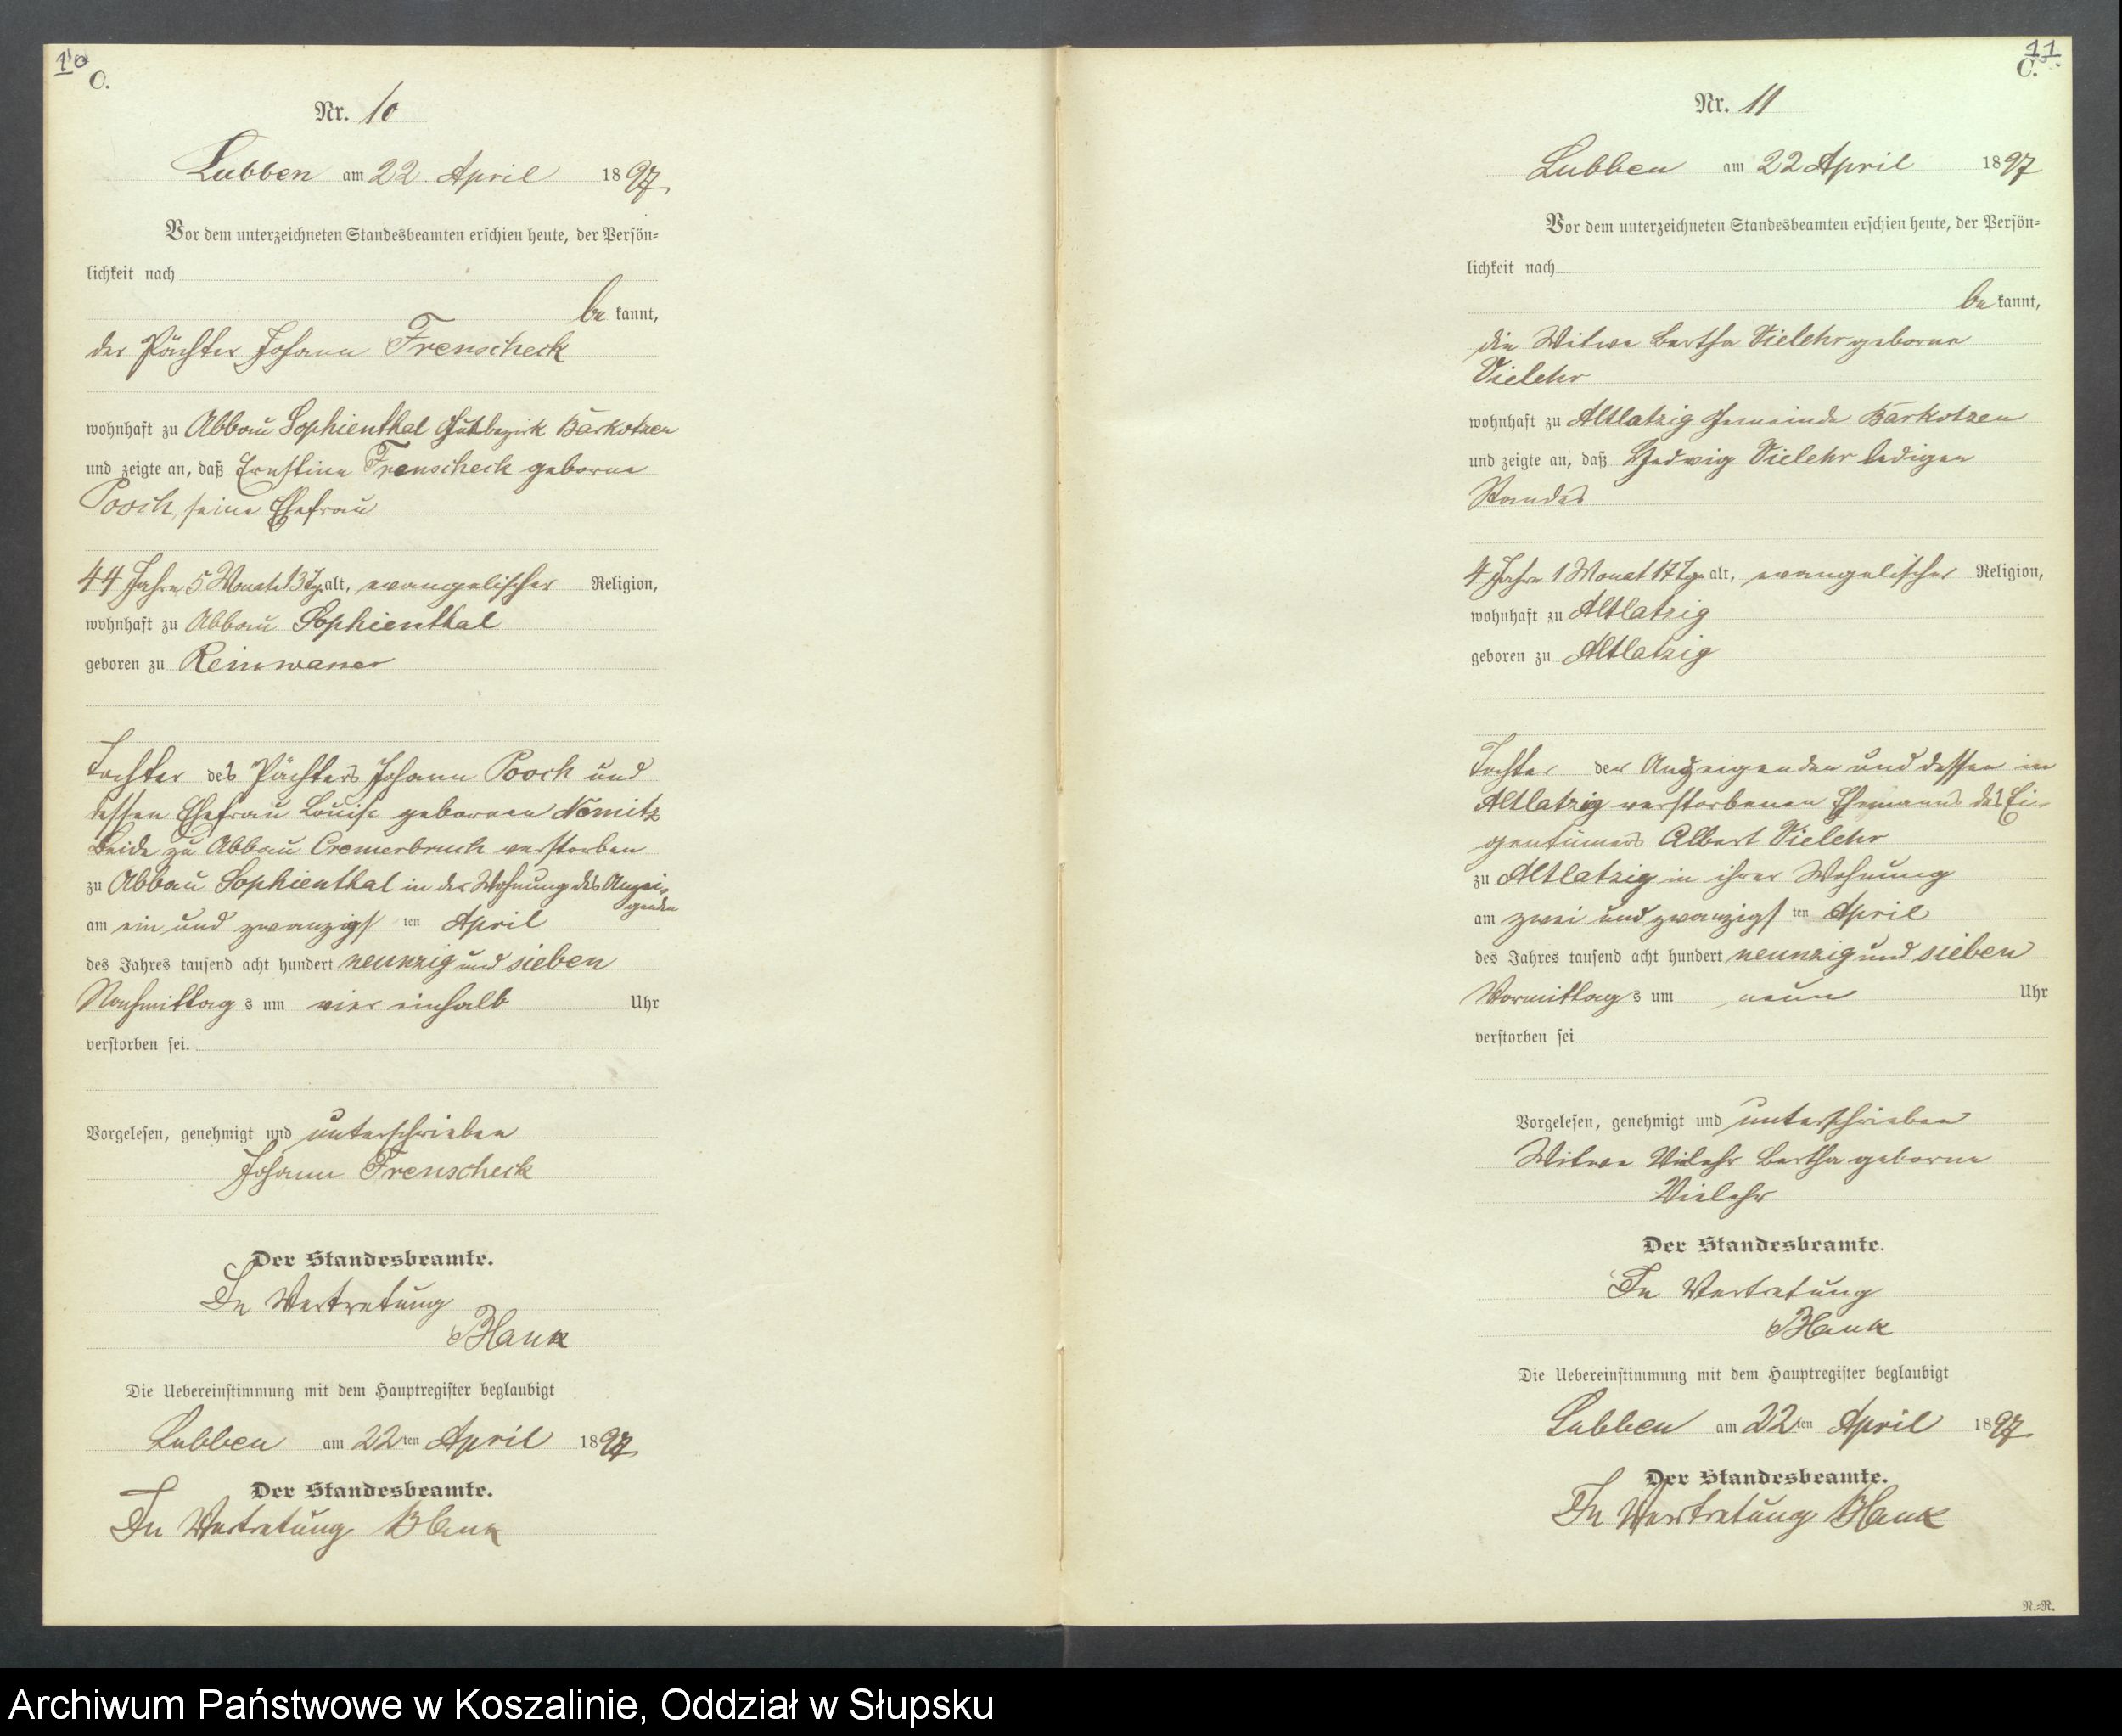 10
C.
Nr. 10
Lubben am 22. April 1897
Vor dem unterzeichneten Standesbeamten erschien heute, der Persön-
lichkeit nach
be kannt,
der Pächter Johann Frenscheck
wohnhaft zu Abbau Sophienthal Gutbezirk Barkotzen
und zeigte an, daß Ernstine Frenscheck geborne
Pooch, seine Ehefrau
44 Jahre 5 Monate 13 Tg. alt, evangelischer Religion,
wohnhaft zu Abbau Sophienthal
geboren zu Reinwasser
Tochter des Pächters Johann Pooch und
dessen Ehefrau Louise gebornen Nomitz
beide zu Abbau Cremerbruch verstorben
zu Abbau Sophienthal in der Wohnung des Anzei-
genden
am ein und zwanzigs ten April
des Jahres tausend acht hundert neunzig und sieben
Nachmittag s um vier einhalb Uhr
verstorben sei.
Vorgelesen, genehmigt und unterschrieben
Johann Frenscheck
Der Standesbeamte.
In Vertretung
Blank
Die Uebereinstimmung mit dem Hauptregister beglaubigt
Lubben am 22 ten April 1897
Der Standesbeamte.
In Vertretung Blank
11
C.
Nr. 11
Lubben am 22 April 1897
Vor dem unterzeichneten Standesbeamten erschien heute, der Persön-
lichkeit nach
be kannt,
die Witwe Bertha Vielehr geborne
Vielehr
wohnhaft zu Altlatzig Gemeinde Barkotzen
und zeigte an, daß Hedwig Vielehr ledigen
Standes
4 Jahre 1 Monat 17 Tge alt, evangelischer Religion,
wohnhaft zu Altlatzig
geboren zu Altlatzig
Tochter der Anzeigenden und dessen in
Altlatzig verstorbenen Ehemanns des Ei-
gentümers Albert Vielehr
zu Altlatzig in ihrer Wohnung
am zwei und zwanzigs ten April
des Jahres tausend acht hundert neunzig und sieben
Vormittag s um neun Uhr
verstorben sei
Vorgelesen, genehmigt und unterschrieben
Witwe Vielehr Bertha geborne
Vielehr
Der Standesbeamte.
In Vertretung
Blank
Die Uebereinstimmung mit dem Hauptregister beglaubigt
Lubben am 22 ten April 1897
Der Standesbeamte.
In Vertretung Blank
N.=R.
Archiwum Państwowe w Koszalinie, Oddział w Słupsku